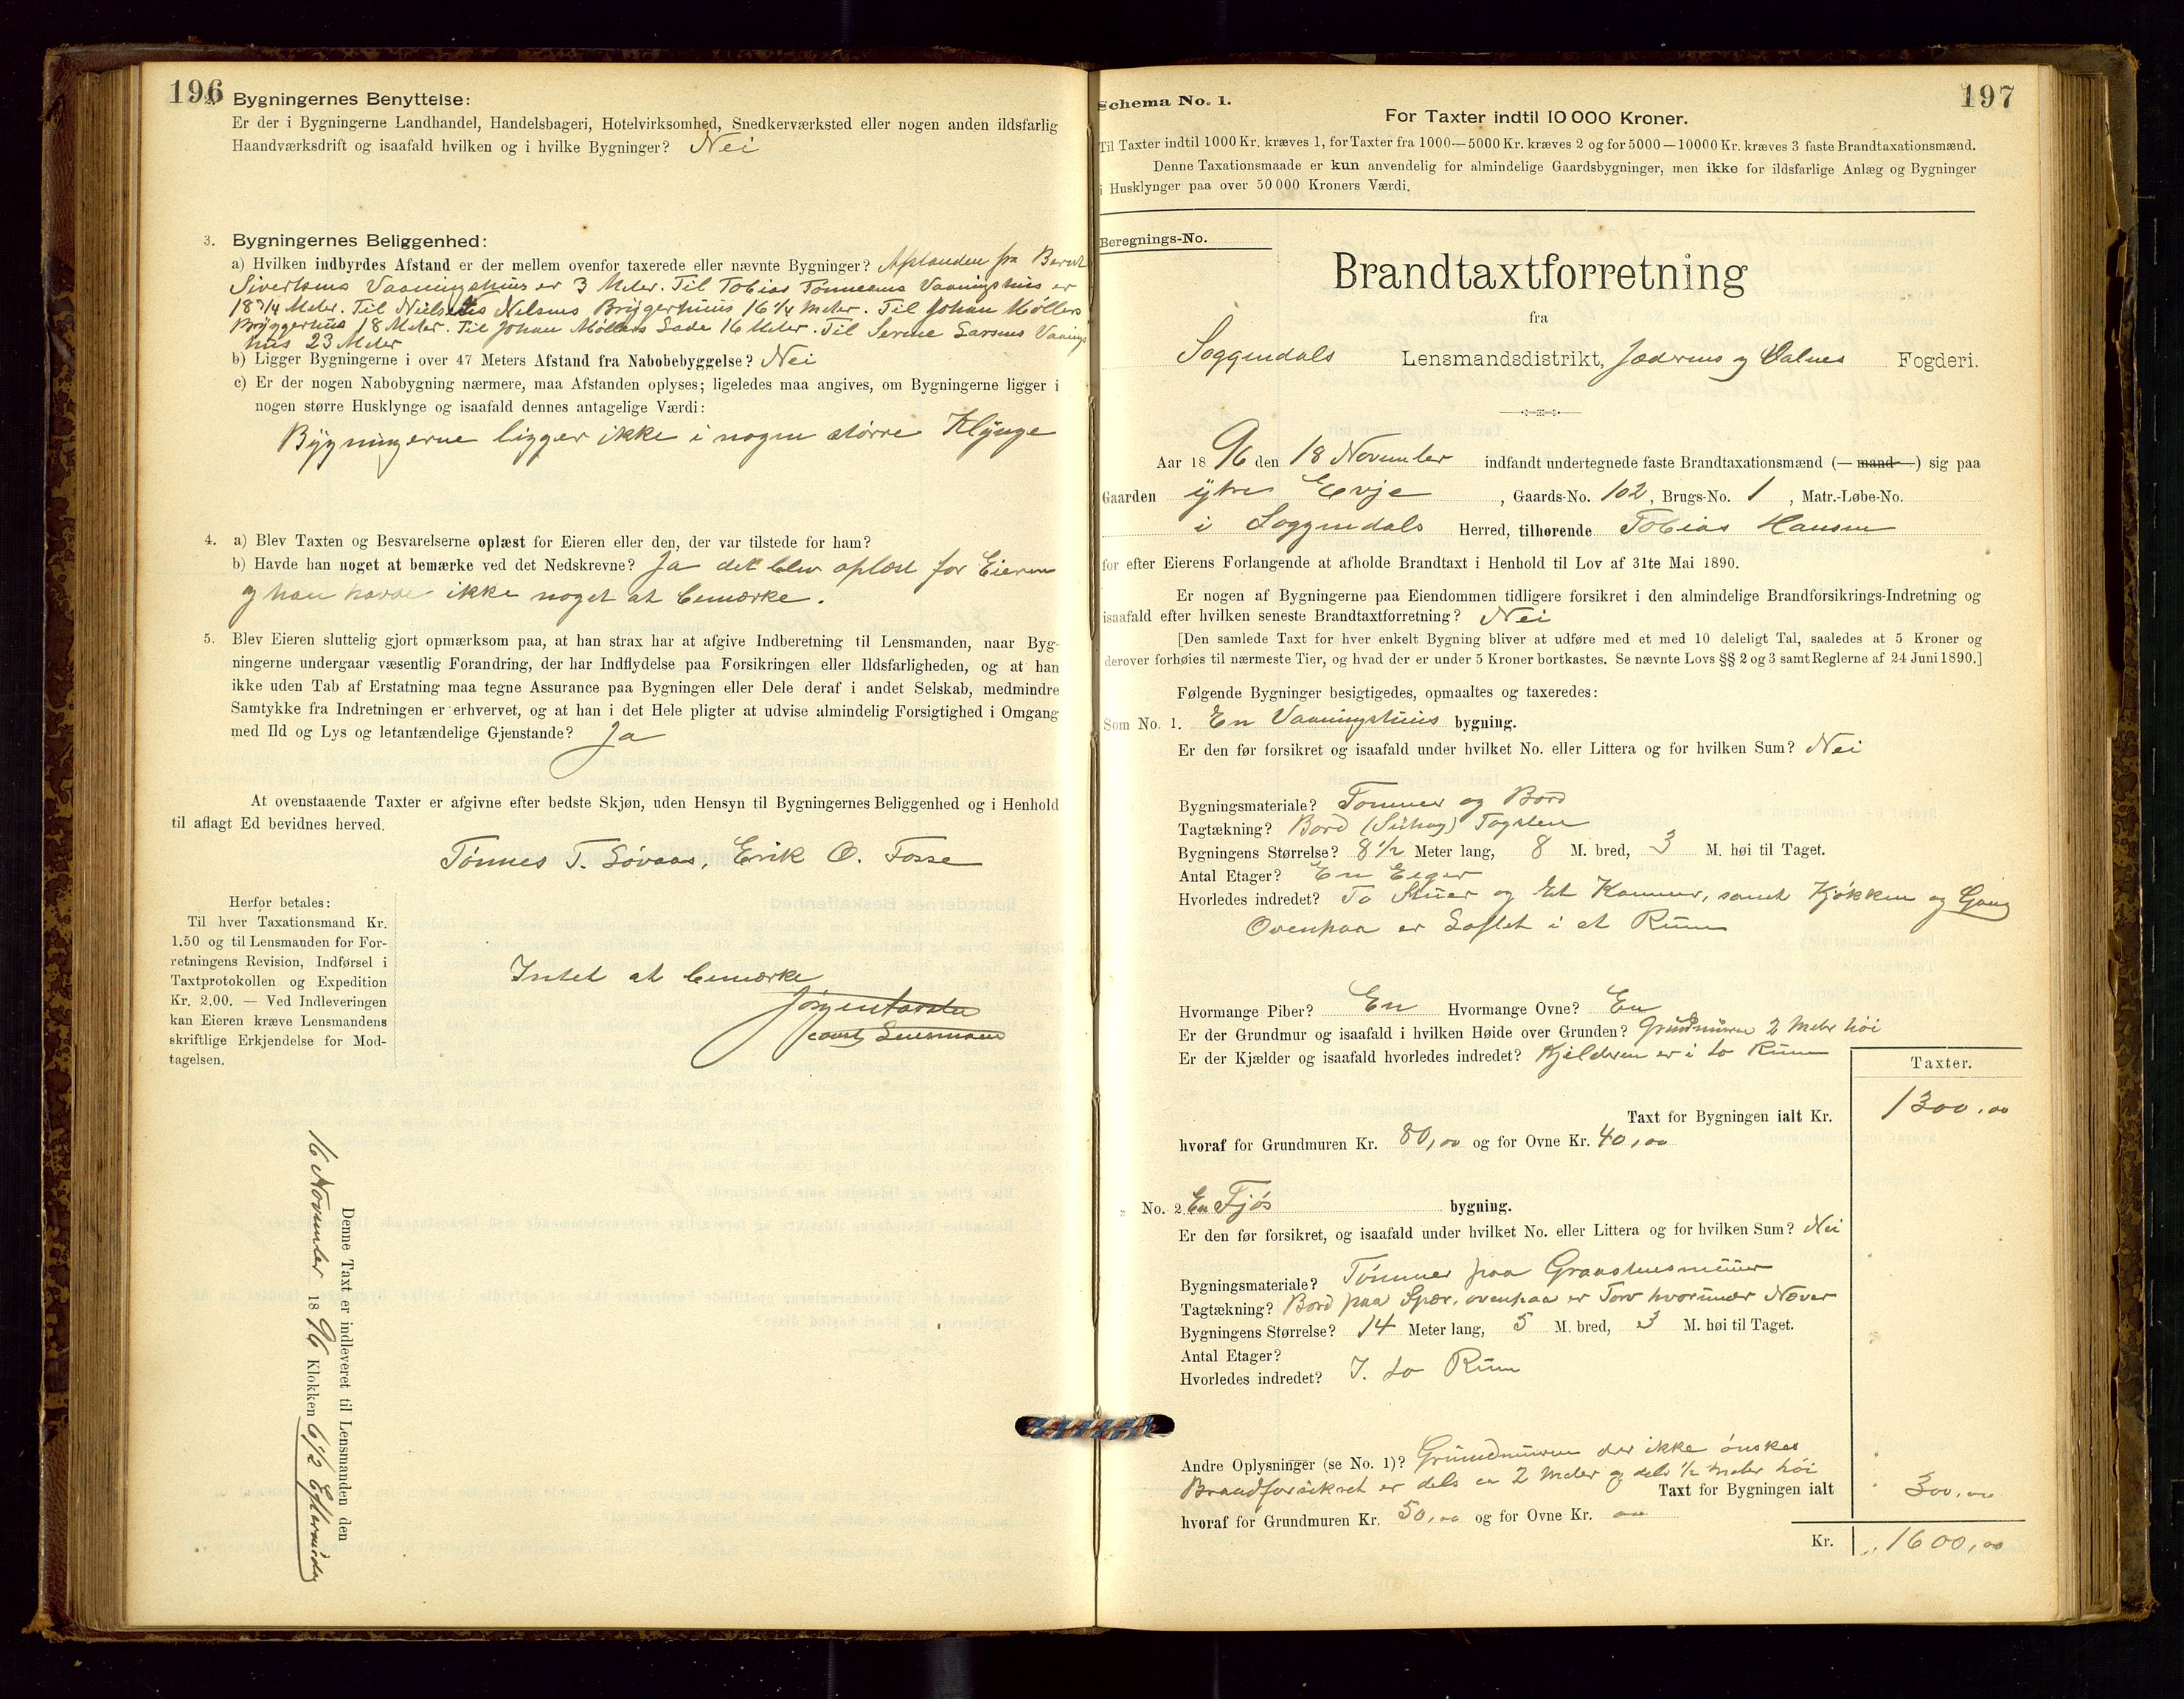 196
Bygningernes Benyttelse:
Er der i Bygningerne Landhandel, Handelsbageri, Hotelvirksomhed, Snedkerværksted eller nogen anden ildsfarlig
Haandværksdrift og isaafald hvilken og i hvilke Bygninger? Nei
3. Bygningernes Beliggenhed:
a) Hvilken indbyrdes Afstand er der mellem ovenfor taxerede eller nævnte Bygninger? Afstanden fra Bernt
Sivertsens Vaaningshuus er 3 Meter. Til Tobias Tønnesens Vaaningshus er
18 3/4 Meter. Til Nielsens Bryggerhuus 16 1/4 Meter. Til Johan Møllers
Bryggerhus 18 Meter. Til Johan Møllers Lade 16 Meter. Til Serine Larsens Vaanings
hus 23 Meter
b) Ligger Bygningerne i over 47 Meters Afstand fra Nabobebyggelse? Nei
c) Er der nogen Nabobygning nærmere, maa Afstanden oplyses; ligeledes maa angives, om Bygningerne ligger i
nogen større Husklynge og isaafald dennes antagelige Værdi:
Bygningerne ligger ikke i nogen større Klynge
4. a) Blev Taxten og Besvarelserne oplæst for Eieren eller den, der var tilstede for ham?
b) Havde han noget at bemærke ved det Nedskrevne? Ja det blev oplæst for Eieren
og han havde ikke noget at bemærke.
5. Blev Eieren sluttelig gjort opmærksom paa, at han strax har at afgive Indberetning til Lensmanden, naar Byg-
ningerne undergaar væsentlig Forandring, der har Indflydelse paa Forsikringen eller Ildsfarligheden, og at han
ikke uden Tab af Erstatning maa tegne Assurance paa Bygningen eller Dele deraf i andet Selskab, medmindre
Samtykke fra Indretningen er erhvervet, og at han i det Hele pligter at udvise almindelig Forsigtighed i Omgang
med Ild og Lys og letantændelige Gjenstande? Ja
At ovenstaaende Taxter er afgivne efter bedste Skjøn, uden Hensyn til Bygningernes Beliggenhed og i Henhold
til aflagt Ed bevidnes herved.
Tønnes T. Løvaas, Erik O. Fosse
Herfor betales:
Til hver Taxationsmand Kr.
1.50 og til Lensmanden for For-
retningens Revision, Indførsel i
Taxtprotokollen og Expedition
Kr. 2.00. — Ved Indleveringen
kan Eieren kræve Lensmandens
skriftlige Erkjendelse for Mod-
tagelsen.
Intet at bemærke
const Lensmand
Denne Taxt er indleveret til Lensmanden den
16 November 1896 Klokken 6 1/2 Eftermiddag
197
Schema No. 1.
For Taxter indtil 10 000 Kroner.
Til Taxter indtil 1000 Kr. kræves 1, for Taxter fra 1000—5000 Kr. kræves 2 og for 5000—10000 Kr. kræves 3 faste Brandtaxationsmænd.
Denne Taxationsmaade er kun anvendelig for almindelige Gaardsbygninger, men ikke for ildsfarlige Anlæg og Bygninger
i Husklynger paa over 50 000 Kroners Værdi.
Beregnings-No.
Brandtaxtforretning
fra
Soggendals Lensmandsdistrikt, Jæderens og Dalnes Fogderi.
Aar 1896 den 18 November indfandt undertegnede faste Brandtaxationsmænd (— mand —) sig paa
Gaarden ytre Evje, Gaards-No. 102, Brugs-No. 1, Matr.-Løbe-No.
i Soggendals Herred, tilhørende Tobias Hansen
for efter Eierens Forlangende at afholde Brandtaxt i Henhold til Lov af 31te Mai 1890.
Er nogen af Bygningerne paa Eiendommen tidligere forsikret i den almindelige Brandforsikrings-Indretning og
isaafald efter hvilken seneste Brandtaxtforretning? Nei
[Den samlede Taxt for hver enkelt Bygning bliver at udføre med et med 10 deleligt Tal, saaledes at 5 Kroner og
derover forhøies til nærmeste Tier, og hvad der er under 5 Kroner bortkastes. Se nævnte Lovs §§ 2 og 3 samt Reglerne af 24 Juni 1890.]
Følgende Bygninger besigtigedes, opmaaltes og taxeredes:
Som No. 1. En Vaaningshuus bygning.
Er den før forsikret og isaafald under hvilket No. eller Littera og for hvilken Sum? Nei
Bygningsmateriale? Tømmer og Bord
Tagtækning? Bord Tagsten
Bygningens Størrelse? 8 1/2 Meter lang, 8 M. bred, 3 M. høi til Taget.
Antal Etager? En Etager
Hvorledes indredet? To Stuer og Et Kammer, samt Kjøkken og Gang
Ovenpaa er Loftet i et Rum
Hvormange Piber? En Hvormange Ovne? En
Er der Grundmur og isaafald i hvilken Høide over Grunden? Grundmuren 2 Meter høi
Er der Kjælder og isaafald hvorledes indredet? Kjelderen er i to Rum
Taxter.
Taxt for Bygningen ialt Kr. 1300,00
hvoraf for Grundmuren Kr. 80,00 og for Ovne Kr. 40,00
" No. 2. En Fjøs bygning.
Er den før forsikret, og isaafald under hvilket No. eller Littera og for hvilken Sum? Nei
Bygningsmateriale? Tømmer paa Graastensmuur
Tagtækning? Bord paa Spær, ovenpaa er Torv hvorunder Næver
Bygningens Størrelse? 14 Meter lang, 5 M. bred, 3 M. høi til Taget.
Antal Etager?
Hvorledes indredet? I to Rum
Andre Oplysninger (se No. 1)? Grundmuren der ikke ønskes
Brandforsikret er dels ca 2 Meter og dels 1/2 Meter høi
Taxt for Bygningen ialt 300,00
hvoraf for Grundmuren Kr. 50,00 og for Ovne Kr. 00
Kr. 1600,00